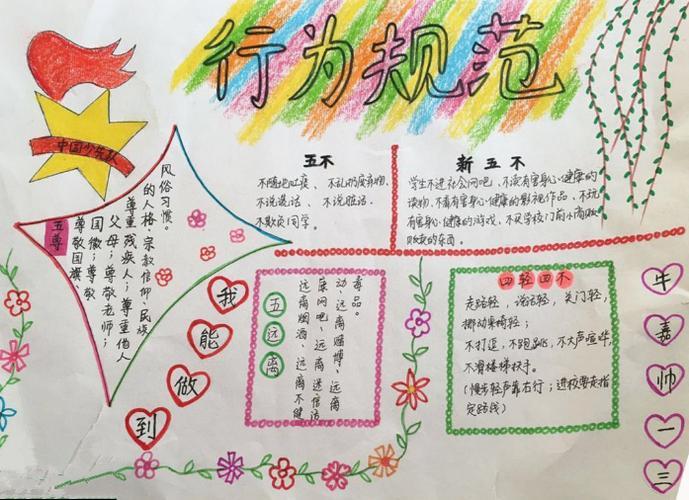 行为规范
中国少先队
五尊
尊敬国旗、
国徽；尊敬
父母；尊敬老师；
尊重残疾人；尊重他人
的人格、宗教信仰、民族
风俗习惯。
五不
不随地吐痰、不乱扔废弃物、
不说谎话、不说脏话、
不欺负同学。
新五不
学生不进社会网吧、不读有害身心健康的
读物、不看有害身心健康的影视作品、不玩
有害身心健康的游戏、不买学校门前小商贩
贩卖的东西。
我能做到
五远离
远离烟酒、远离不健
康网吧、远离迷信活
动、远离赌博、远离
毒品。
四轻四不
走路轻，说话轻，关门轻，
挪动桌椅轻；
不打逗，不跑跳，不大声喧哗，
不滑楼梯扶手。
（慢步轻声靠右行；进校要走指
定路线）
牛嘉帅一三